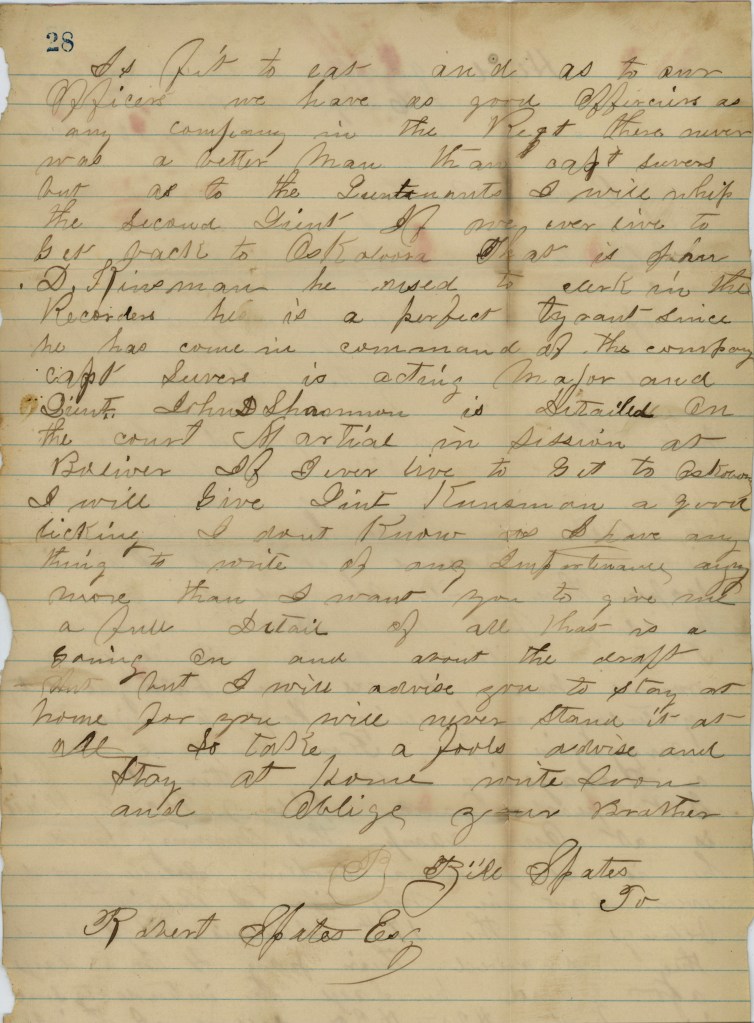 28
Is fit to eat and as to our
Officers we have as good Officiers as
any company in the Regt there never
was a better Man than capt Suvers
but as to the Lieutenants I will whip
the second Lieut If we ever live to
Get back to Oskaloosa That is John
D. Kinsman he used to clerk in the
Recorders he is a perfect tyrant since
he has come in command of the company
capt Suvers is acting Major and
Lieut John D Shannon is Ditailed on
the court Martial in session at
Boliver If I ever live to Get to
I will Give Lint Kunsman a good
licking I dont Know as I have any
thing to write of any Importenance any
more than I want you to give me
a full Detail of all that is a
Going on and about the draft
but but I will advise you to stay at
home for you will never stand it at
all So take a fools advise and
Stay at home write Soon
and Oblige your Brother
B Bill Spates
To
Robert Spates Esq